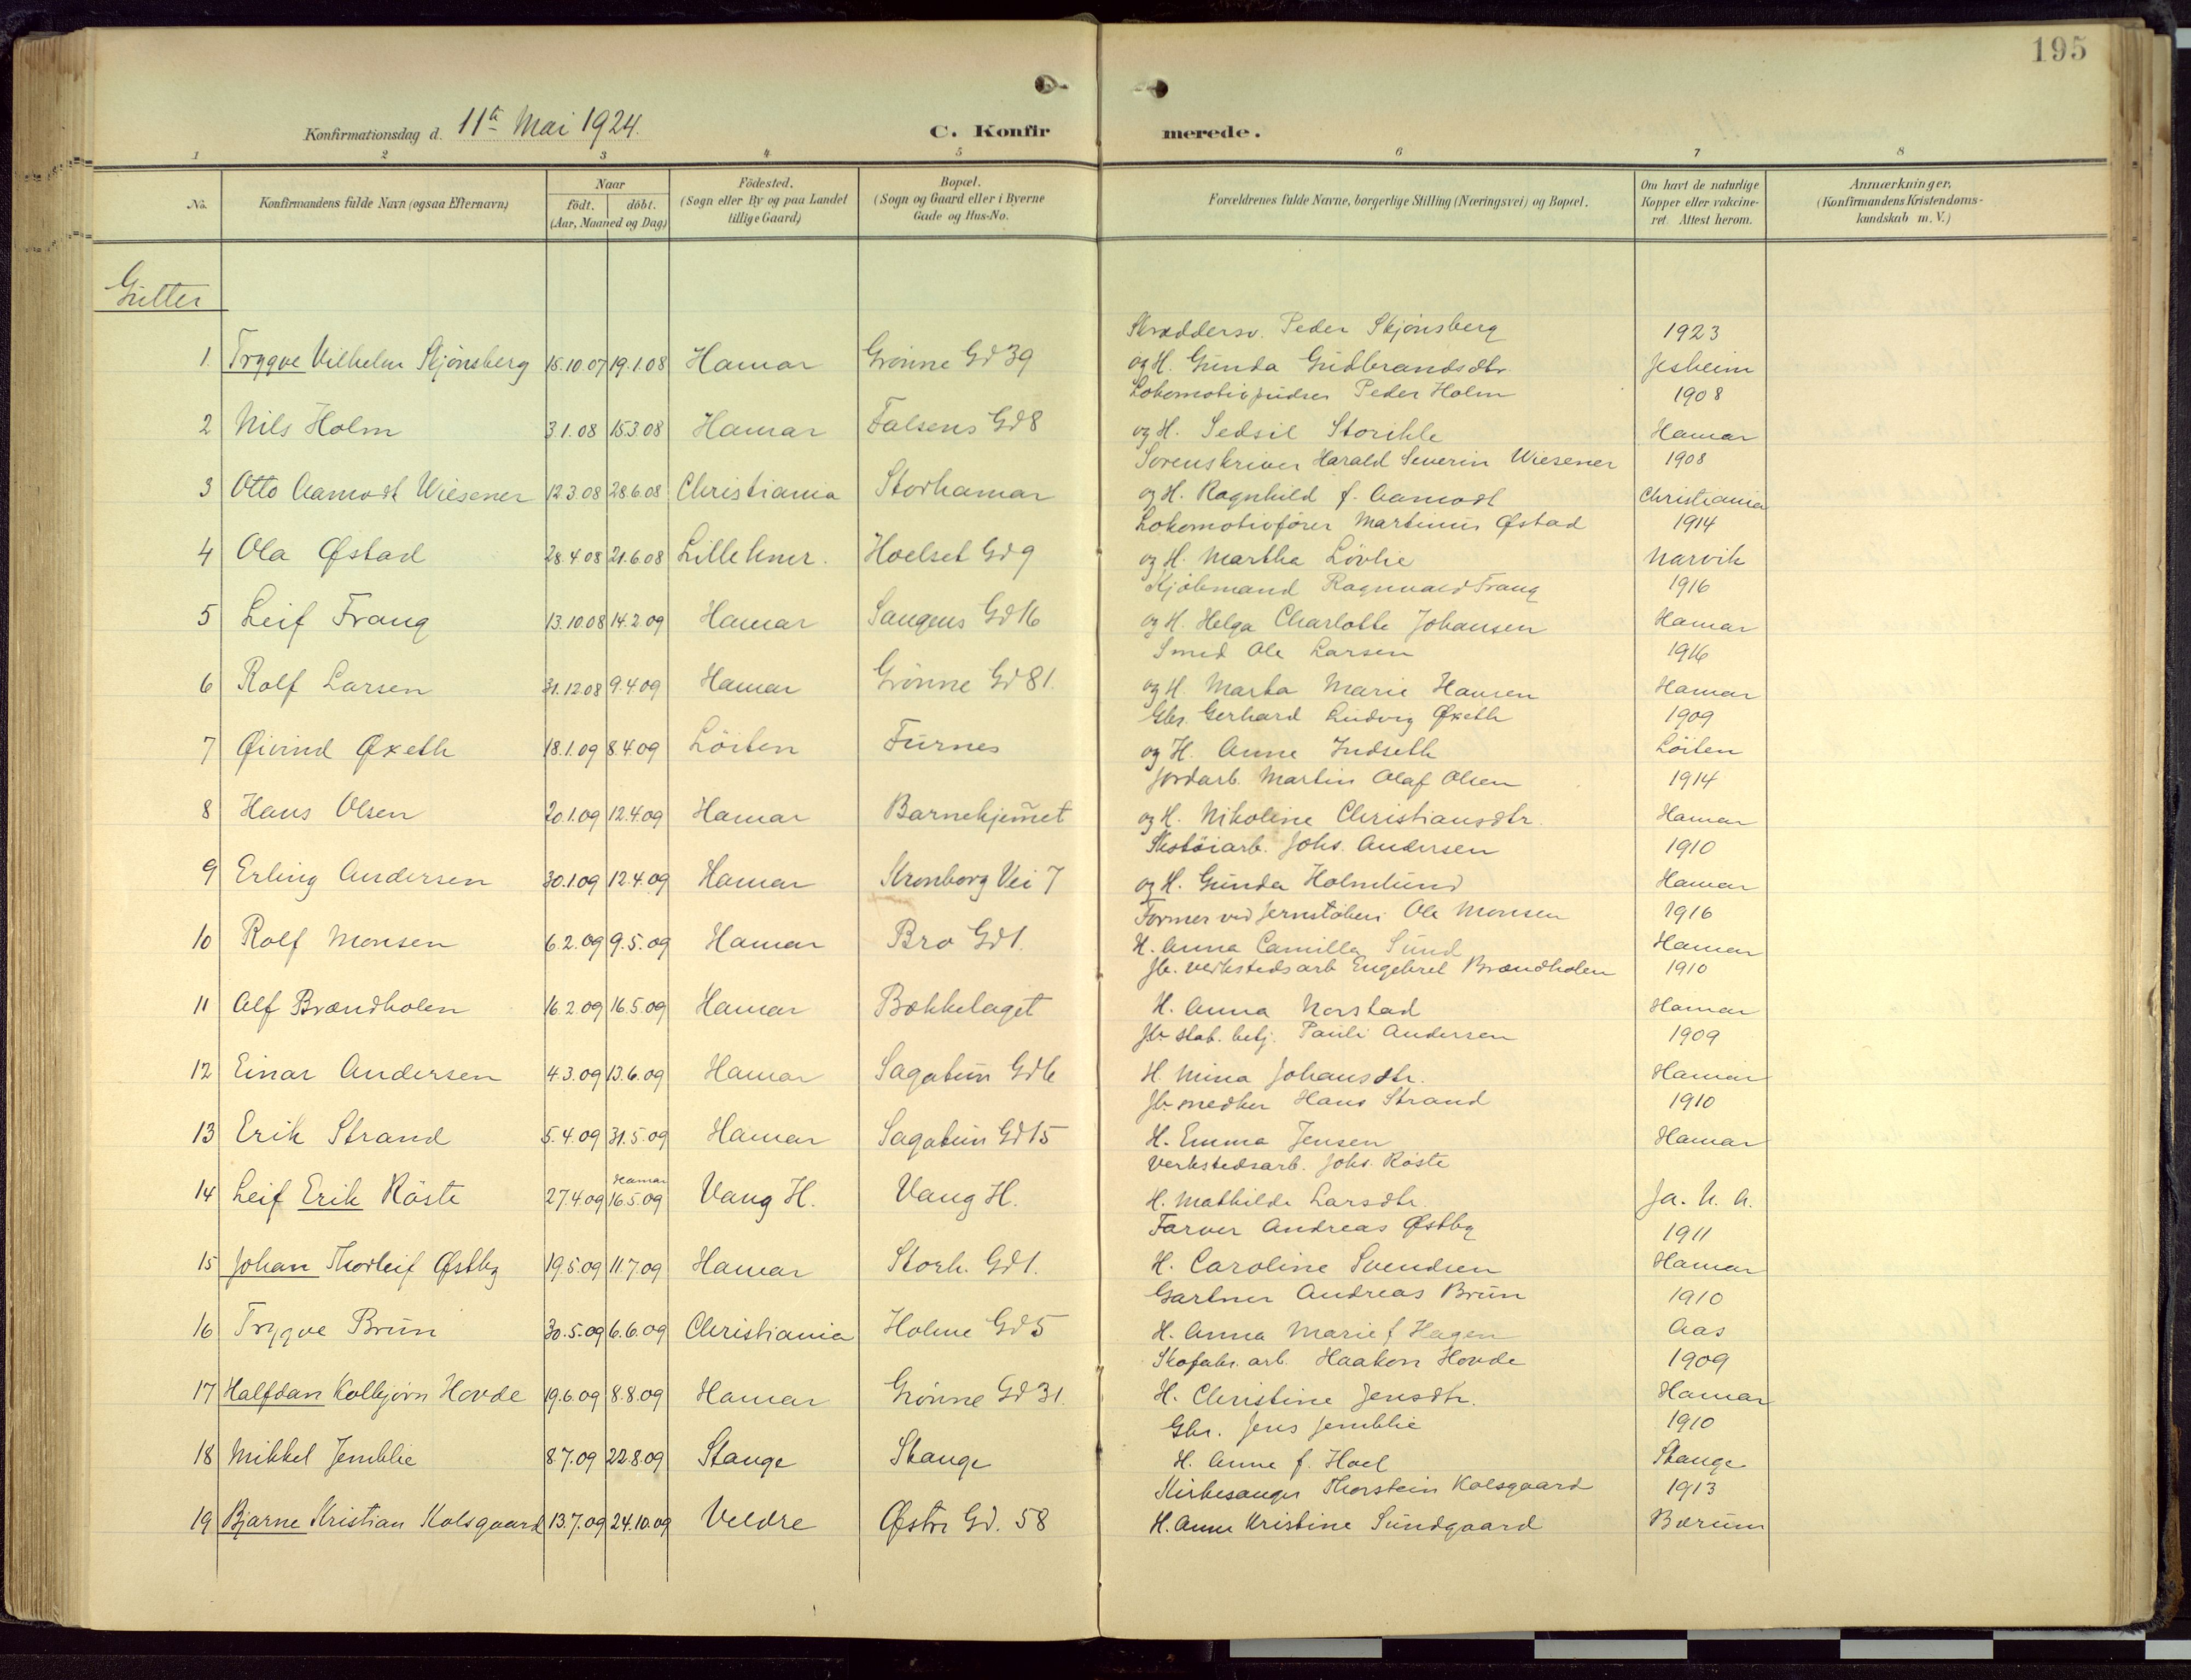 195
Konfirmationsdag d. 11te Mai 1924.
C. Konfir merede.
1 2 3 4 5 6 7 8
No. Konfirmandens fulde Navn (ogsaa Efternavn) Naar födt. döbt. (Aar, Maaned og Dag) Födested. (Sogn eller By og paa Landet tillige Gaard) Bopæl. (Sogn og Gaard eller i Byerne Gade og Hus-No. Forældrenes fulde Navne, borgerlige Stilling (Næringsvei) og Bopæl. Om havt de naturlige Kopper eller vakcineret. Attest herom. Anmærkninger, (Konfirmandens Kristendomskundskab m. V.)
Gutter
Skræddersv. Peder Skjønsberg 1923
1. Trygve Vilhelm Skjønsberg 15.10.07 19.1.08 Hamar Grønne Gd 39 og H. Gunda Gudbrandsdtr. Jesheim
Lokomotivpudser Peder Holm 1908
2 Nils Holm 3 1.08 15.3.08 Hamar Falsens Gd 8 og H. Sedsil Storihle Hamar
Sorenskriver Harald Severin Wiesener 1908
3 Otto Aamodt Wiesener 12.3.08 28.6.08 Christiania Storhamar og H. Ragnhild f. Aamodt Christiania
Lokomotivfører Martinus Østad 1914
4 Ola Østad 28.4.08 21.6.08 Lillehmr. Hoelset Gd 9 og H. Martha Løvlie Narvik
Kjøbmand Ragnvald Frang 1916
5 Leif Frang 13.10.08 14.2.09 Hamar Skaugens Gd 16 og H. Helga Charlotte Johansen Hamar
Smed Ole Larsen 1916
6 Rolf Larsen 31.12.08 9.4.09 Hamar Grønne Gd 81. og H. Marta Marie Hansen Hamar
Gbr. Gerhard Ludvig Øxeth 1909
7 Øivind Øxeth 18.1.09 8.4.09 Löiten Furnes og H. Anne Indseth Löiten
Jordarb. Martin Olaf Olsen 1914
8 Hans Olsen 20.1.09 12.4.09 Hamar Barnehjemmet og H. Nikoline Christiansdtr. Hamar
Skotöiarb. Johs. Andersen 1910
9 Erling Andersen 30.1.09 12.4.09 Hamar Kronborg Vei 7 og H. Gunda Holmlund Hamar
Former ved Jernstøberi Ole Monsen 1916
10 Rolf Monsen 6.2.09 9.5.09 Hamar Bro Gd 1. H. Anna Camilla Sund Hamar
Jb. verkstedsarb Engebret Brændholen 1910
11 Alf Brændholen 16.2.09 16.5.09 Hamar Bækkelaget H. Anna Norstad Hamar
Jb. stab. betj. Pauli Andersen 1909
12 Einar Andersen 4.3.09 13.6.09 Hamar Sagatun Gd 6 H. Mina Johansdtr. Hamar
Jb. snedker Hans Strand 1910
13 Erik Strand 5.4.09 31.5.09 Hamar Sagatun Gd 15 H. Emma Jensen Hamar
Verkstedsarb. Johs. Röste
14 Leif Erik Röste 27.4.09 Hamar 16.5.09 Vang H. Vang H. H. Mathilde Larsdtr. Ja. U. A.
Farver Andreas Østby 1911
15 Johan Thorleif Østby 19.5.09 11.7.09 Hamar Storh. Gd 1. H. Caroline Svendsen Hamar
Gartner Andreas Brun 1910
16 Trygve Brun 30.5.09 6.6.09 Christiania Holme Gd 5 H. Anna Marie f Hagen Aas
Skofabr. arb. Haakon Hovde 1909
17 Halfdan Kolbjørn Hovde 19.6.09 8.8.09 Hamar Grønne Gd 31. H. Christine Jensdtr. Hamar
Gbr. Jens Jemblie 1910
18 Mikkel Jemblie 8.7.09 22.8.09 Stange Stange H. Anne f. Hoel Stange
Kirkesanger Thorstein Kolsgaard 1913
19 Bjarne Kristian Kolsgaard 13.7.09 24.10.09 Veldre Østre Gd. 58 H. Anne Kristine Sundgaard Bærum